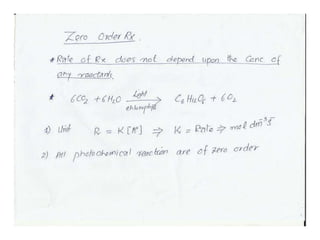 Zero Order Rx.
* Rate of Rx does not depend upon the Conc of
any reactant.
* 6CO2 + 6H2O —Light/chlorophyll→ C6H12O6 + 6O2
1) Unit R = K[A°] ⇒ K = Rate ⇒ mol dm⁻³ s
2) All photochemical reaction are of zero order